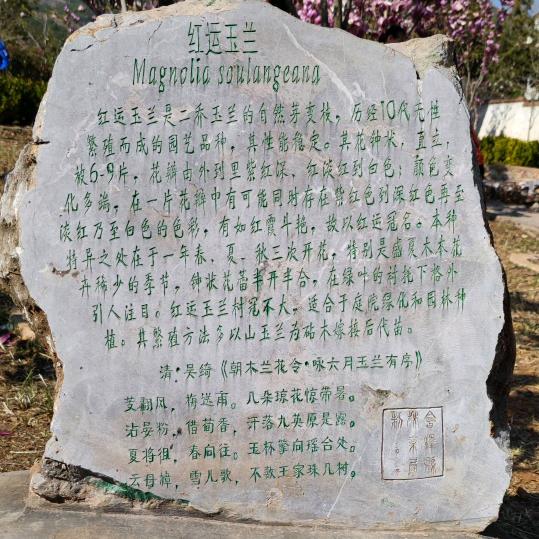 红运玉兰
Magnolia soulangeana
红运玉兰是二乔玉兰的自然芽变枝，历经10代无性
繁殖而成的园艺品种，其性能稳定。其花钟状，直立，
被6-9片，花瓣由外到里紫红深，红淡红到白色；颜色变
化多端，在一片花瓣中有可能同时存在紫红色到深红色再至
淡红乃至白色的色彩，有如红霞斗艳，故以红运冠名。本种
特异之处在于一年春、夏、秋三次开花，特别是盛夏木本花
卉稀少的季节，钟状花蕾半开半合，在绿叶的衬托下格外
引人注目。红运玉兰树冠不大，适合于庭院绿化和园林种
植。其繁殖方法多以山玉兰为砧木嫁接后代苗。
清·吴绮《朝木兰花令·咏六月玉兰有序》
芰翻风，梅送雨。几朵琼花惊带暑。
沾晏粉，借荀香，汗落九英原是露。
夏将徂，春向往。玉杯擎向瑶台处。
云母幛，雪儿歌，不数王家珠几树。